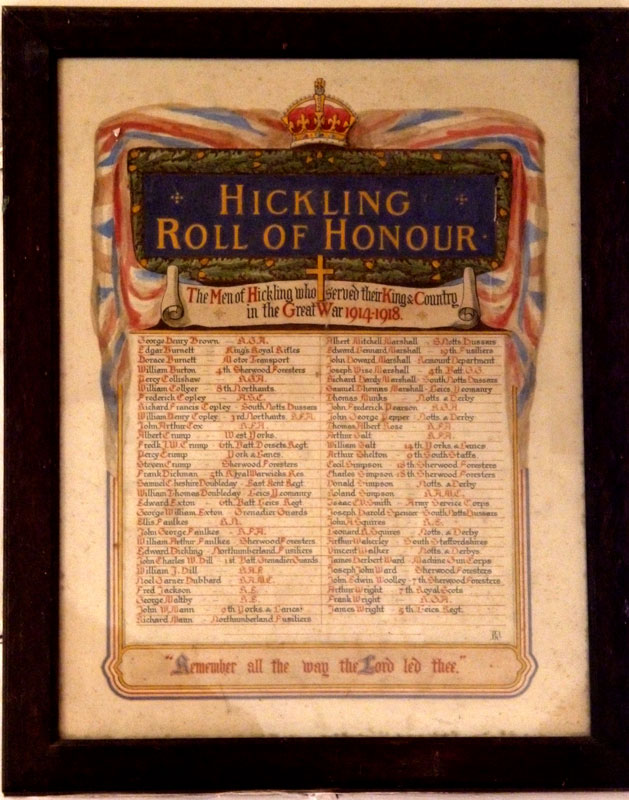 HICKLING
ROLL OF HONOUR
The Men of Hickling who served their King & Country
in the Great War 1914-1918.
George Henry Brown
Edgar Burnett King's Royal Rifles
Horace Burnett Motor Transport
William Burton 4th Sherwood Foresters
Percy Collishaw
William Collyer 8th Northants.
Frederick Copley A.S.C.
Richard Francis Copley South Notts Hussars
William Henry Copley 3rd Northants. R.F.A.
John Arthur Cox R.F.A.
Albert Crump West Yorks.
Fredk J.W. Crump 6th Batt. Dorsets Regt.
Percy Crump York & Lancs.
Steven Crump Sherwood Foresters
Frank Dickman 5th Royal Warwicks Res.
Samuel Cheshire Doubleday East Kent Regt
William Thomas Doubleday Leics Yeomanry
Edward Exton 6th Batt Leics Regt
George William Exton Grenadier Guards
Ellis Faulkes R.N.
John George Faulkes R.F.A.
William Arthur Faulkes Sherwood Foresters
Edward Hickling Northumberland Fusiliers
John Charles W. Hill 1st Batt. Grenadier Guards
William J. Hill
Noel Jarner Hubbard R.A.M.C.
Fred Jackson R.E.
George Maltby R.E.
John W. Mann 9th Yorks. & Lancs
Richard Mann Northumberland Fusiliers
Albert Mitchell Marshall S. Notts Hussars
Edward Bennard Marshall 19th Fusiliers
John Howard Marshall Remount Department
Joseph Wise Marshall 4th Batt. G.G.
Richard Hardy Marshall South Notts Hussars
Samuel Thomas Marshall Leics. Yeomanry
Thomas Munks Notts & Derby
John Frederick Pearson
John George Pepper Notts. & Derby
Thomas Albert Rose R.F.A.
Arthur Salt R.F.A.
William Salt 14th Yorks & Lancs
Arthur Shelton 9th South Staffs
Cecil Simpson 18th Sherwood Foresters
Charles Simpson 18th Sherwood Foresters
Donald Simpson Notts. & Derby
Roland Simpson R.A.M.C.
Isaac W Smith Army Service Corps
Joseph Harold Spencer South Notts Hussars
John A Squires R.E.
Leonard R. Squires Notts. & Derby
Arthur Wakerley South Staffordshires
Vincent Walker Notts. & Derbys
James Herbert Ward Machine Gun Corps
Joseph John Ward Sherwood Foresters
John Edwin Woolley 7th Sherwood Foresters
Arthur Wright 7th Royal Scots
Frank Wright
James Wright 5th Leics Regt.
"Remember all the way the Lord led thee."